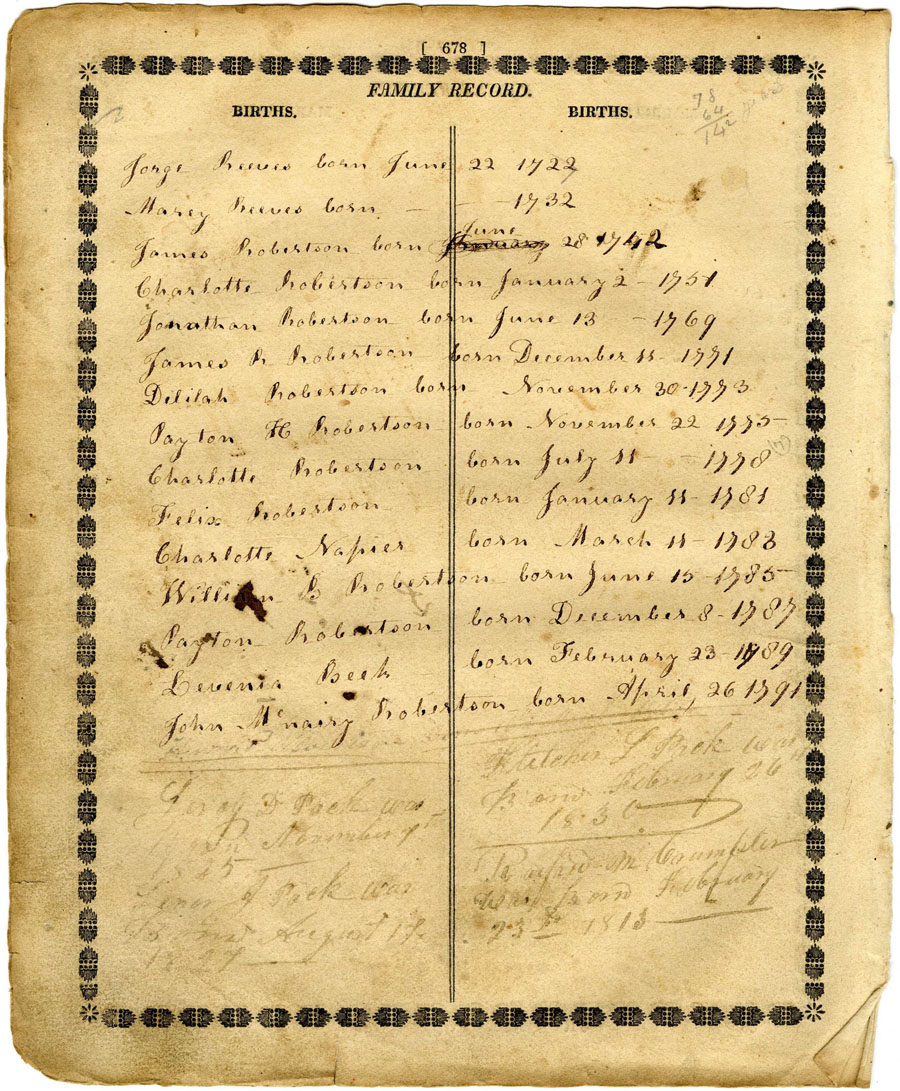 [ 678 ]
FAMILY RECORD.
BIRTHS. BIRTHS.
78
64
142
Jorge Reeves born June 22 1722
Marey Reeves born - - - 1732
June
James Robertson born 28 1742
Charlotte Robertson born January 2 - 1751
Jonathan Robertson born June 13 - 1769
James R Robertson born December 11 - 1771
Delilah Robertson born November 30 - 1773
Payton H Robertson born November 22 1775
Charlotte Robertson born July 11 - 1778
Felix Robertson born January 11 - 1781
Charlotte Napier born March 11 - 1783
William B Robertson born June 15 - 1785
Payton Robertson born December 8 - 1787
Levenia Beek born February 23 - 1789
John McNairy Robertson born April, 26 1791
D Peek was
November
25
Peek was
August 17
1827
Fletcher S Peek was
Born February 26
1830
M
was Born February
23rd 1813